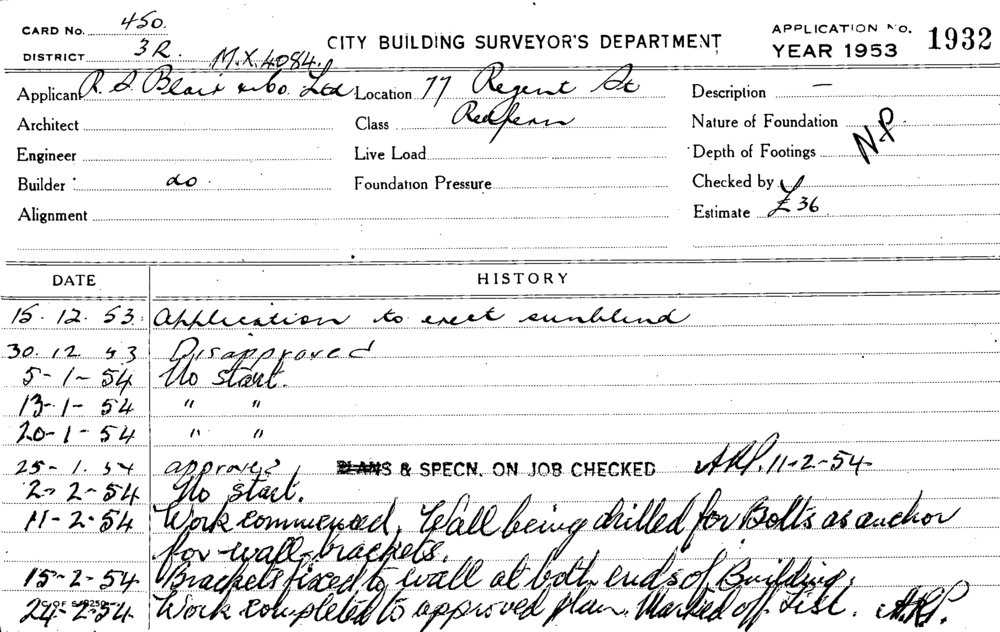 CARD No. 450.
DISTRICT 3R. M.X.4084.
CITY BUILDING SURVEYOR'S DEPARTMENT
APPLICATION No. 1932
YEAR 1953
Applicant R. A. Blair & Co. Ltd Location 77 Regent St Description —
Architect Class Redfern Nature of Foundation
Engineer Live Load Depth of Footings N.P
Builder do Foundation Pressure Checked by
Alignment Estimate £36
DATE HISTORY
15.12.53. Application to erect sunblind
30.12.53 Disapproved
5-1-54 No start.
13-1-54 " "
20-1-54 " "
25-1.54 approved, PLANS & SPECN. ON JOB CHECKED ARP. 11-2-54
2-2-54 No start.
11-2-54 Work commenced. Wall being drilled for Bolts as anchor
for wall brackets.
15-2-54 Brackets fixed to wall at both ends of Building.
24-2-54 Work completed to approved plan. Marked off List. ARP.